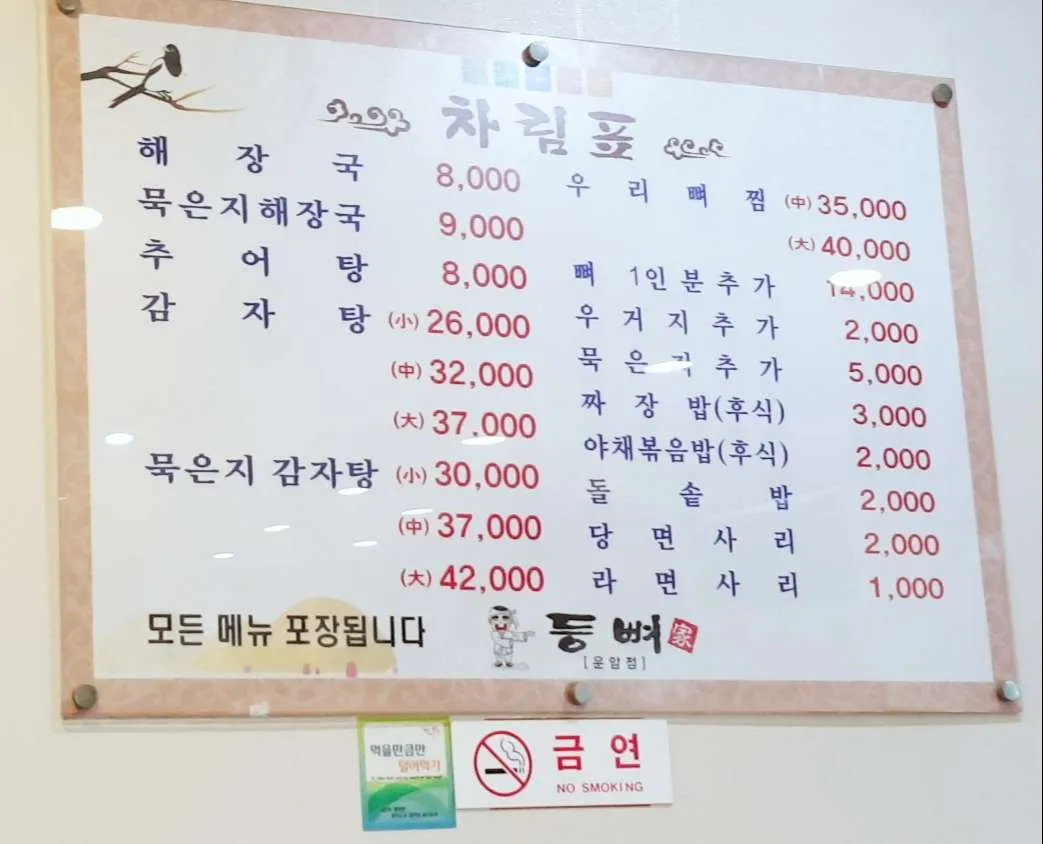 차림표
해장국 8,000
묵은지해장국 9,000
추어탕 8,000
감자탕 (小) 26,000
(中) 32,000
(大) 37,000
묵은지 감자탕 (小) 30,000
(中) 37,000
(大) 42,000
우리뼈찜 (中) 35,000
(大) 40,000
뼈 1인분추가 14,000
우거지추가 2,000
묵은지추가 5,000
짜장밥(후식) 3,000
야채볶음밥(후식) 2,000
돌솥밥 2,000
당면사리 2,000
라면사리 1,000
모든 메뉴 포장됩니다
등뼈家
[운암점]
먹을만큼만
덜어먹기
금연
NO SMOKING